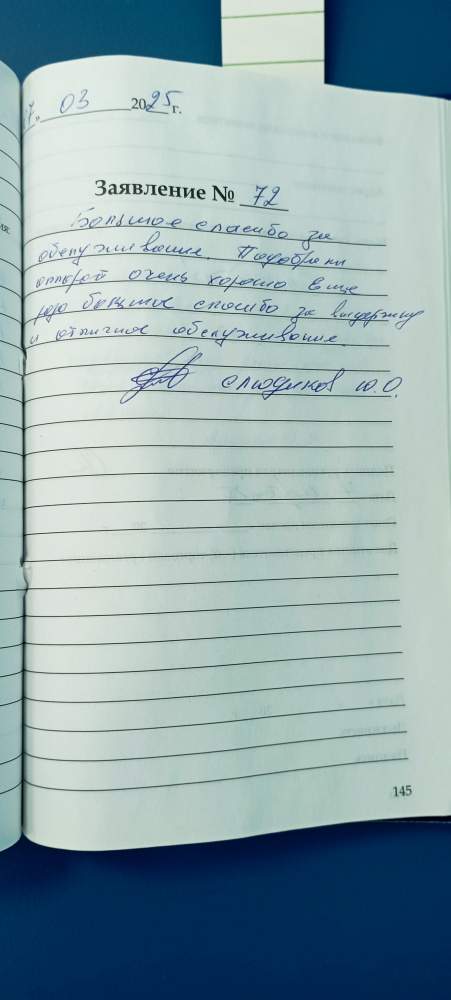 7" 03 2025 г.
Заявление № 72
Большое спасибо за
обслуживание. Подобрали
очень хорошо Еще
раз большое спасибо за выдержку
и отличное обслуживание.
Слюдиков Ю.О.
145